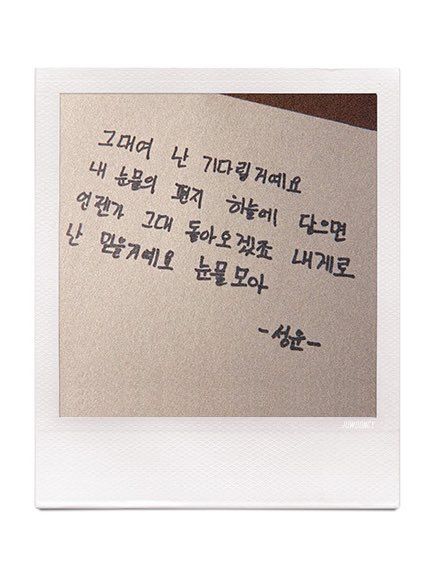 그대여 난 기다릴거예요
내 눈물의 편지 하늘에 닿으면
언젠가 그대 돌아오겠죠 내게로
난 믿을거예요 눈물모아
-성윤-
JUWOONCY